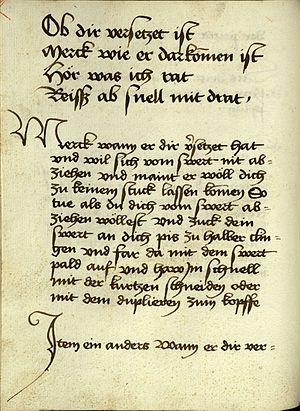 Ob dir versetzet ist
Merck wie er darkomen ist
Hör was ich rat
Reissz ab snell mit drat,
Merck wann er dir v̓setzet hat
vnd wil sich vom swert nit ab-
ziehen vnd maint er wöll dich
zu keinem stuck lassen komen So
tue als du dich vom swert ab-
ziehen wollest vnd zuck dein
swert an dich pis zu halber clin-
gen vnd far da mit dem swert
pald auf vnd haw Im schnell
mit der kurtzen schneiden oder
mit dem duplieren zum kopffe
Item ein anders Wann er dir ver-